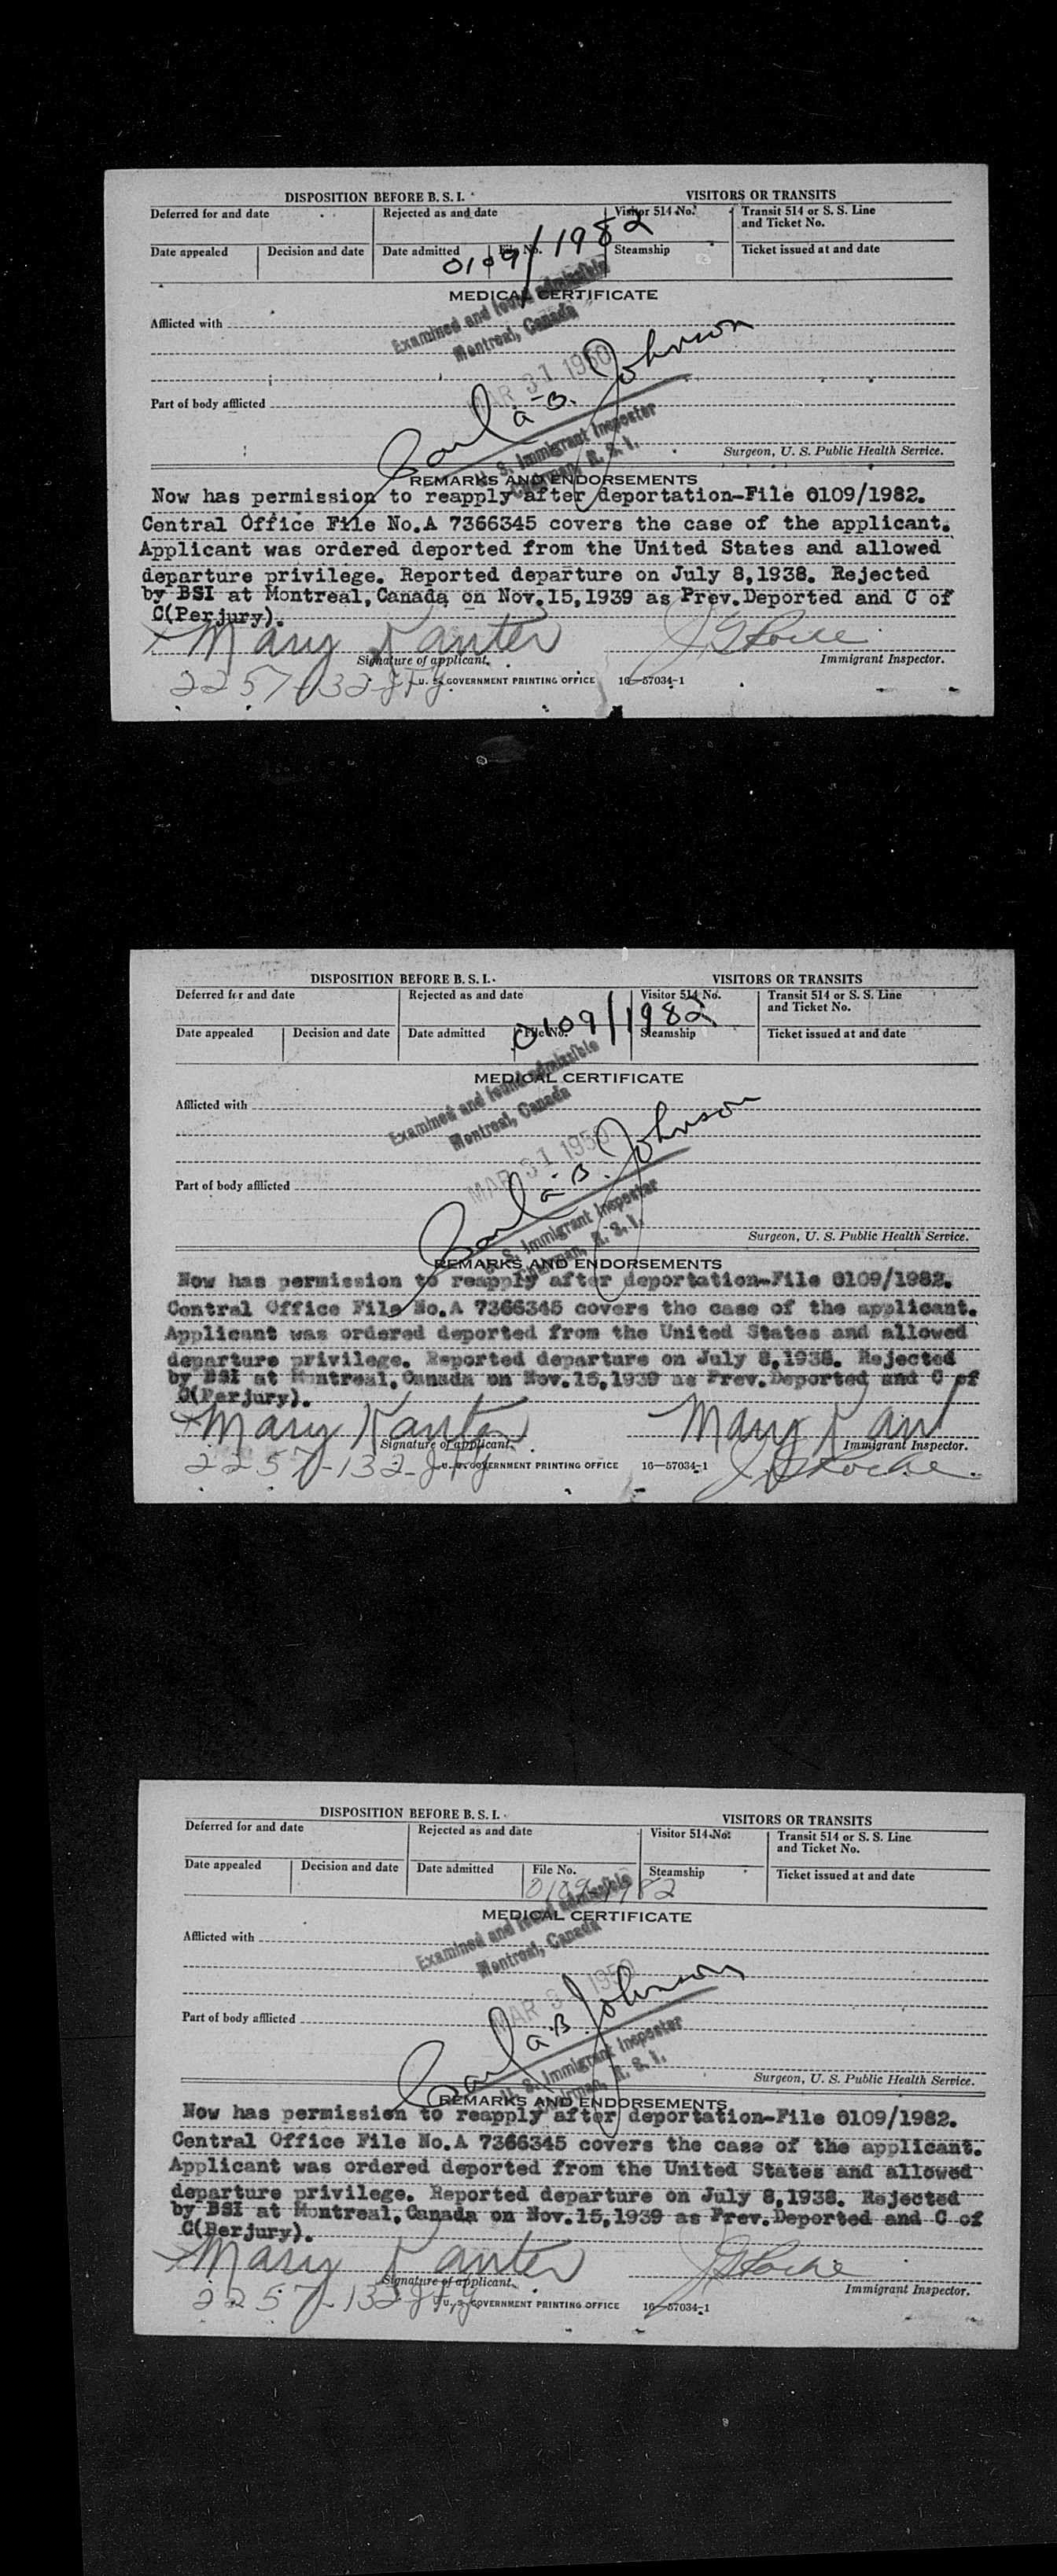 DISPOSITION BEFORE B. S. I.
VISITORS OR TRANSITS
Deferred for and date
Rejected as and date
Visitor 514 No.
Transit 514 or S. S. Line and Ticket No.
Date appealed
Decision and date
Date admitted
File No.
Steamship
Ticket issued at and date
0109/1982
MEDICAL CERTIFICATE
Examined and found admissible
Montreal, Canada
Afflicted with
MAR 31 1950
Paul A. B. Johnson
Part of body afflicted
U. S. Immigrant Inspector
Chairman, B. S. I.
Surgeon, U. S. Public Health Service.
REMARKS AND ENDORSEMENTS
Now has permission to reapply after deportation-File 0109/1982.
Central Office File No.A 7366345 covers the case of the applicant.
Applicant was ordered deported from the United States and allowed
departure privilege. Reported departure on July 8,1938. Rejected
by BSI at Montreal,Canada on Nov.15,1939 as Prev.Deported and C of
C(Perjury).
x Mary Kanter
Signature of applicant.
Immigrant Inspector.
2257-132
U. S. GOVERNMENT PRINTING OFFICE 16—57034-1
DISPOSITION BEFORE B. S. I.
VISITORS OR TRANSITS
Deferred for and date
Rejected as and date
Visitor 514 No.
Transit 514 or S. S. Line and Ticket No.
Date appealed
Decision and date
Date admitted
File No.
Steamship
Ticket issued at and date
0109/1982
MEDICAL CERTIFICATE
Examined and found admissible
Montreal, Canada
Afflicted with
MAR 31 1950
Paul A. B. Johnson
Part of body afflicted
U. S. Immigrant Inspector
Chairman, B. S. I.
Surgeon, U. S. Public Health Service.
REMARKS AND ENDORSEMENTS
Now has permission to reapply after deportation-File 0109/1982.
Central Office File No.A 7366345 covers the case of the applicant.
Applicant was ordered deported from the United States and allowed
departure privilege. Reported departure on July 8,1938. Rejected
by BSI at Montreal,Canada on Nov.15,1939 as Prev.Deported and C of
C(Perjury).
x Mary Kanter
Mary Kan
Signature of applicant.
Immigrant Inspector.
2257-132
U. S. GOVERNMENT PRINTING OFFICE 16—57034-1
DISPOSITION BEFORE B. S. I.
VISITORS OR TRANSITS
Deferred for and date
Rejected as and date
Visitor 514 No.
Transit 514 or S. S. Line and Ticket No.
Date appealed
Decision and date
Date admitted
File No.
Steamship
Ticket issued at and date
0109/1982
MEDICAL CERTIFICATE
Examined and found admissible
Montreal, Canada
Afflicted with
MAR 31 1950
Paul A. B. Johnson
Part of body afflicted
U. S. Immigrant Inspector
Chairman, B. S. I.
Surgeon, U. S. Public Health Service.
REMARKS AND ENDORSEMENTS
Now has permission to reapply after deportation-File 0109/1982.
Central Office File No.A 7366345 covers the case of the applicant.
Applicant was ordered deported from the United States and allowed
departure privilege. Reported departure on July 8,1938. Rejected
by BSI at Montreal,Canada on Nov.15,1939 as Prev.Deported and C of
C(Perjury).
x Mary Kanter
Signature of applicant.
Immigrant Inspector.
2257-132
U. S. GOVERNMENT PRINTING OFFICE 16—57034-1